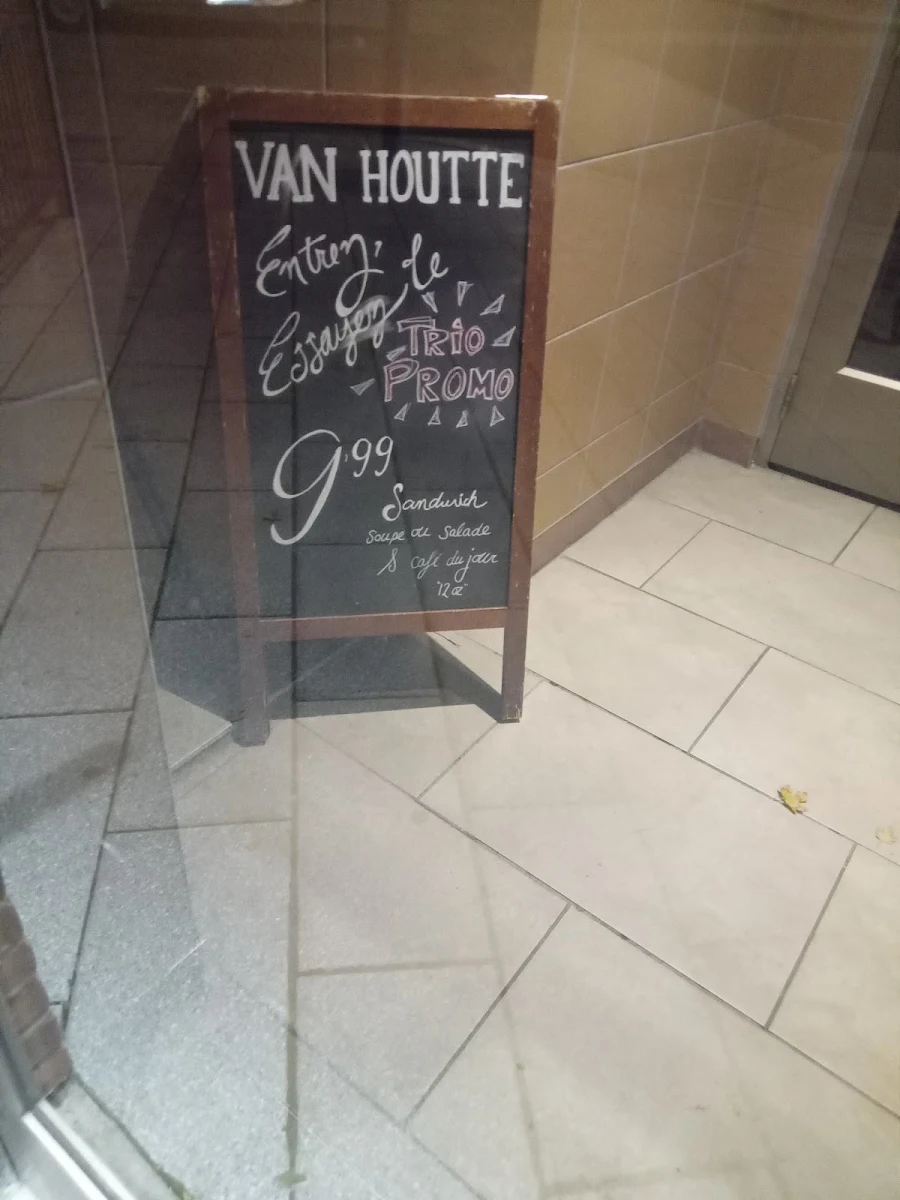 VAN HOUTTE
Entrez, le
Essayez TRIO
PROMO
9.99
Sandwich
Soupe ou Salade
& café du jour
"12 oz"